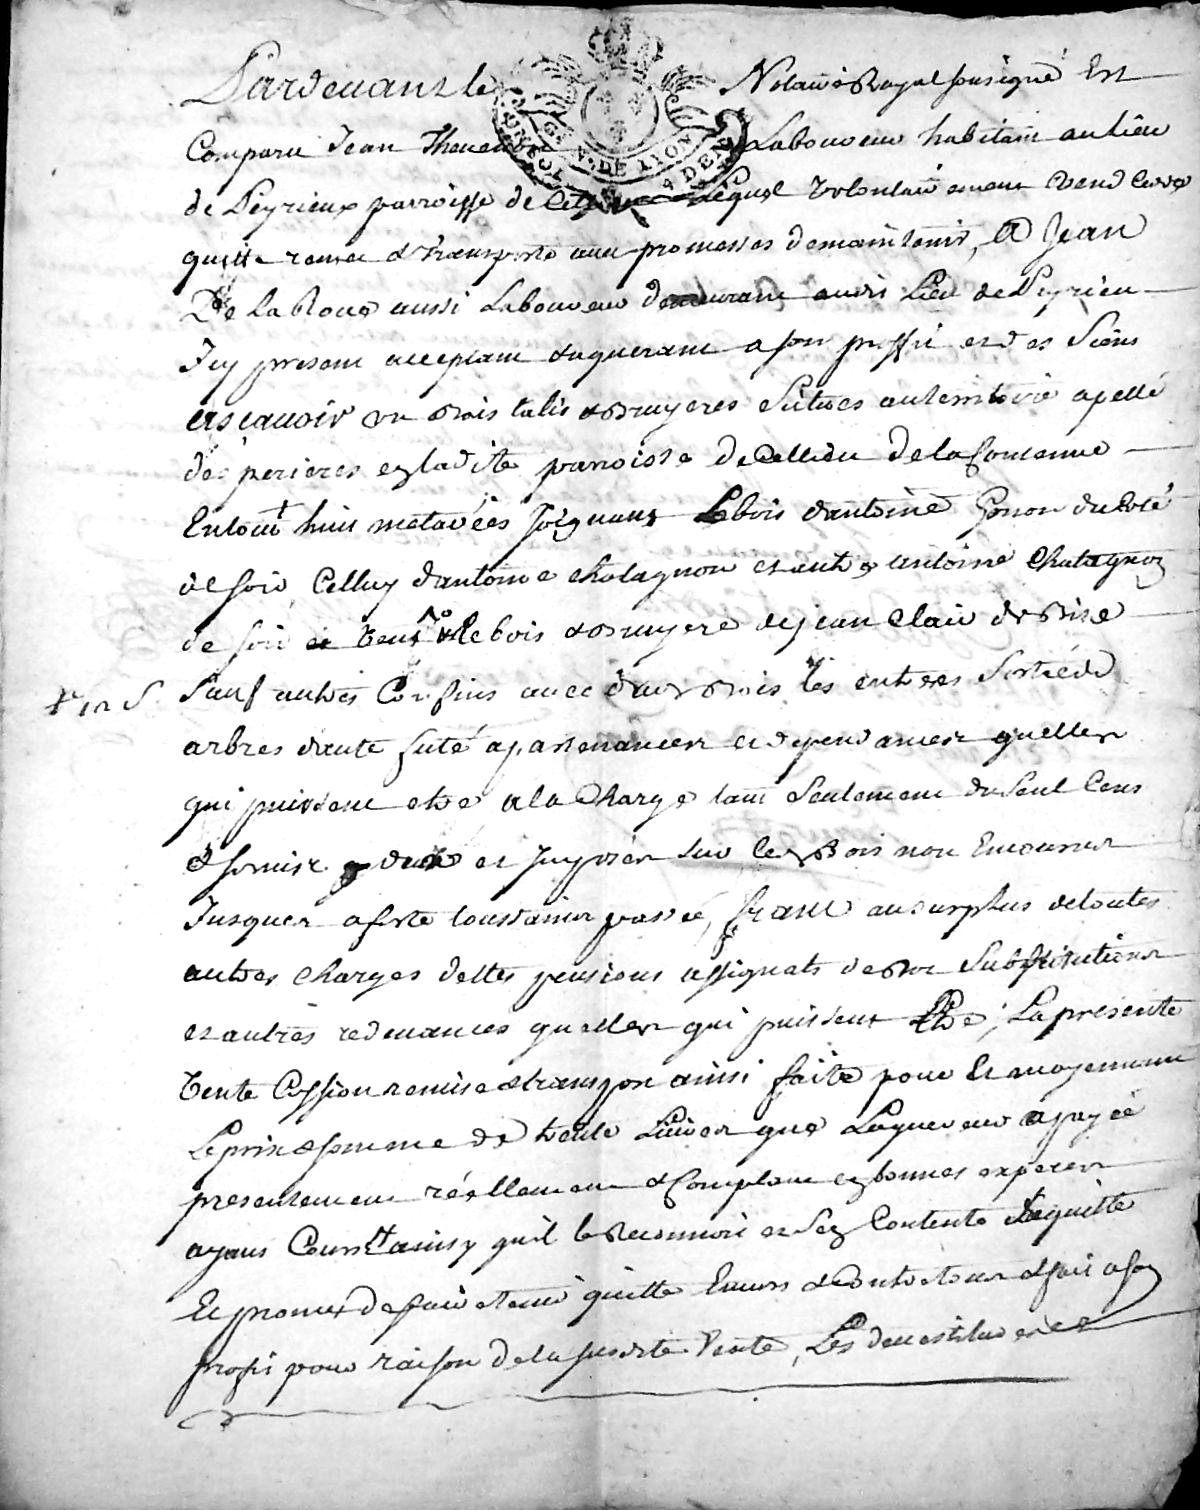 Pardevant le Notaire Royal sousigné Est
Comparu Jean Laboureur habitant au lieu
de Peyrieux parroisse de Lequel volontairement vend cedde
quitte remet & transporte avec promesses de maintenir, A Jean
De la Roue aussi Laboureur demeurant audit Lieu de Peyrieu
Icy present acceptant & aquerant a son proffit et des Siens
Ascavoir un bois talis & bruyeres Situes au territoire apellé
des perieres en ladite parroisse de Cellieu de la Contenue
Entout huit metarées Joignant Lebois dantoine Gonon du Coté
de soir Celluy dantoine chatagnon et autre antoine Chatagnon
de soir Lebois & bruyere de jean Clair de bise
Sauf autres Confins avec ses entrées Sorties
arbres apartenances et dependances quelles
qui puissent etre a la Charge tant Seulement du Seul Cens
& servise et Imposés sur le bois non Encourus
Jusques a feste toussaint passée, franc au surplus de toutes
autres charges dettes pensions assignats Substitutions
et autres redevances quelles qui puissent Etre; La presente
Vente Cession remise & transport ainsi faite pour Et moyennant
Le prix & somme de trente Livres que Laquereur a payée
presentement réellement & Comptant en bonnes especes
ayant Cours ainsy quil le Reconnoit et sen Contente Lequitte
Et promet de faire tenir quitte Envers & Contre tous
profit pour raison de la susdite Vente, Les
GEN. DE LYON